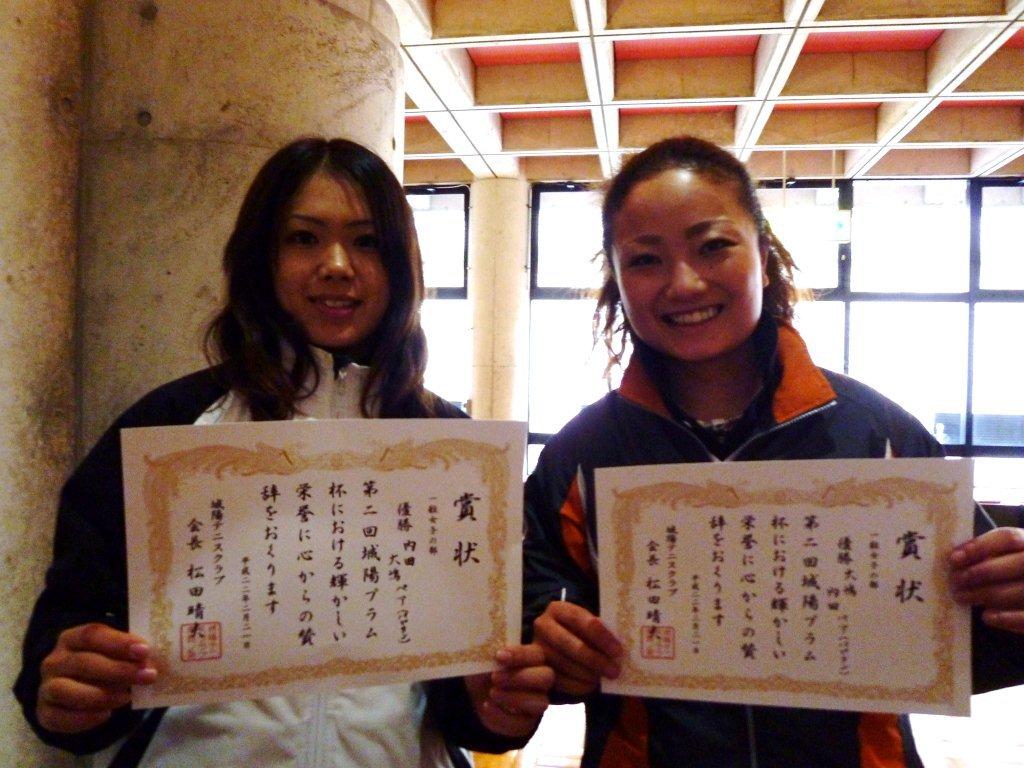 賞状
一般女子の部
優勝 内田
大嶋 ペア
第二回城陽プラム
杯における輝かしい
栄誉に心からの賛
辞をおくります
平成二二年二月二一日
城陽テニスクラブ
会長 松田晴夫
賞状
一般女子の部
優勝 大嶋
内田 ペア
第二回城陽プラム
杯における輝かしい
栄誉に心からの賛
辞をおくります
平成二二年二月二一日
城陽テニスクラブ
会長 松田晴夫